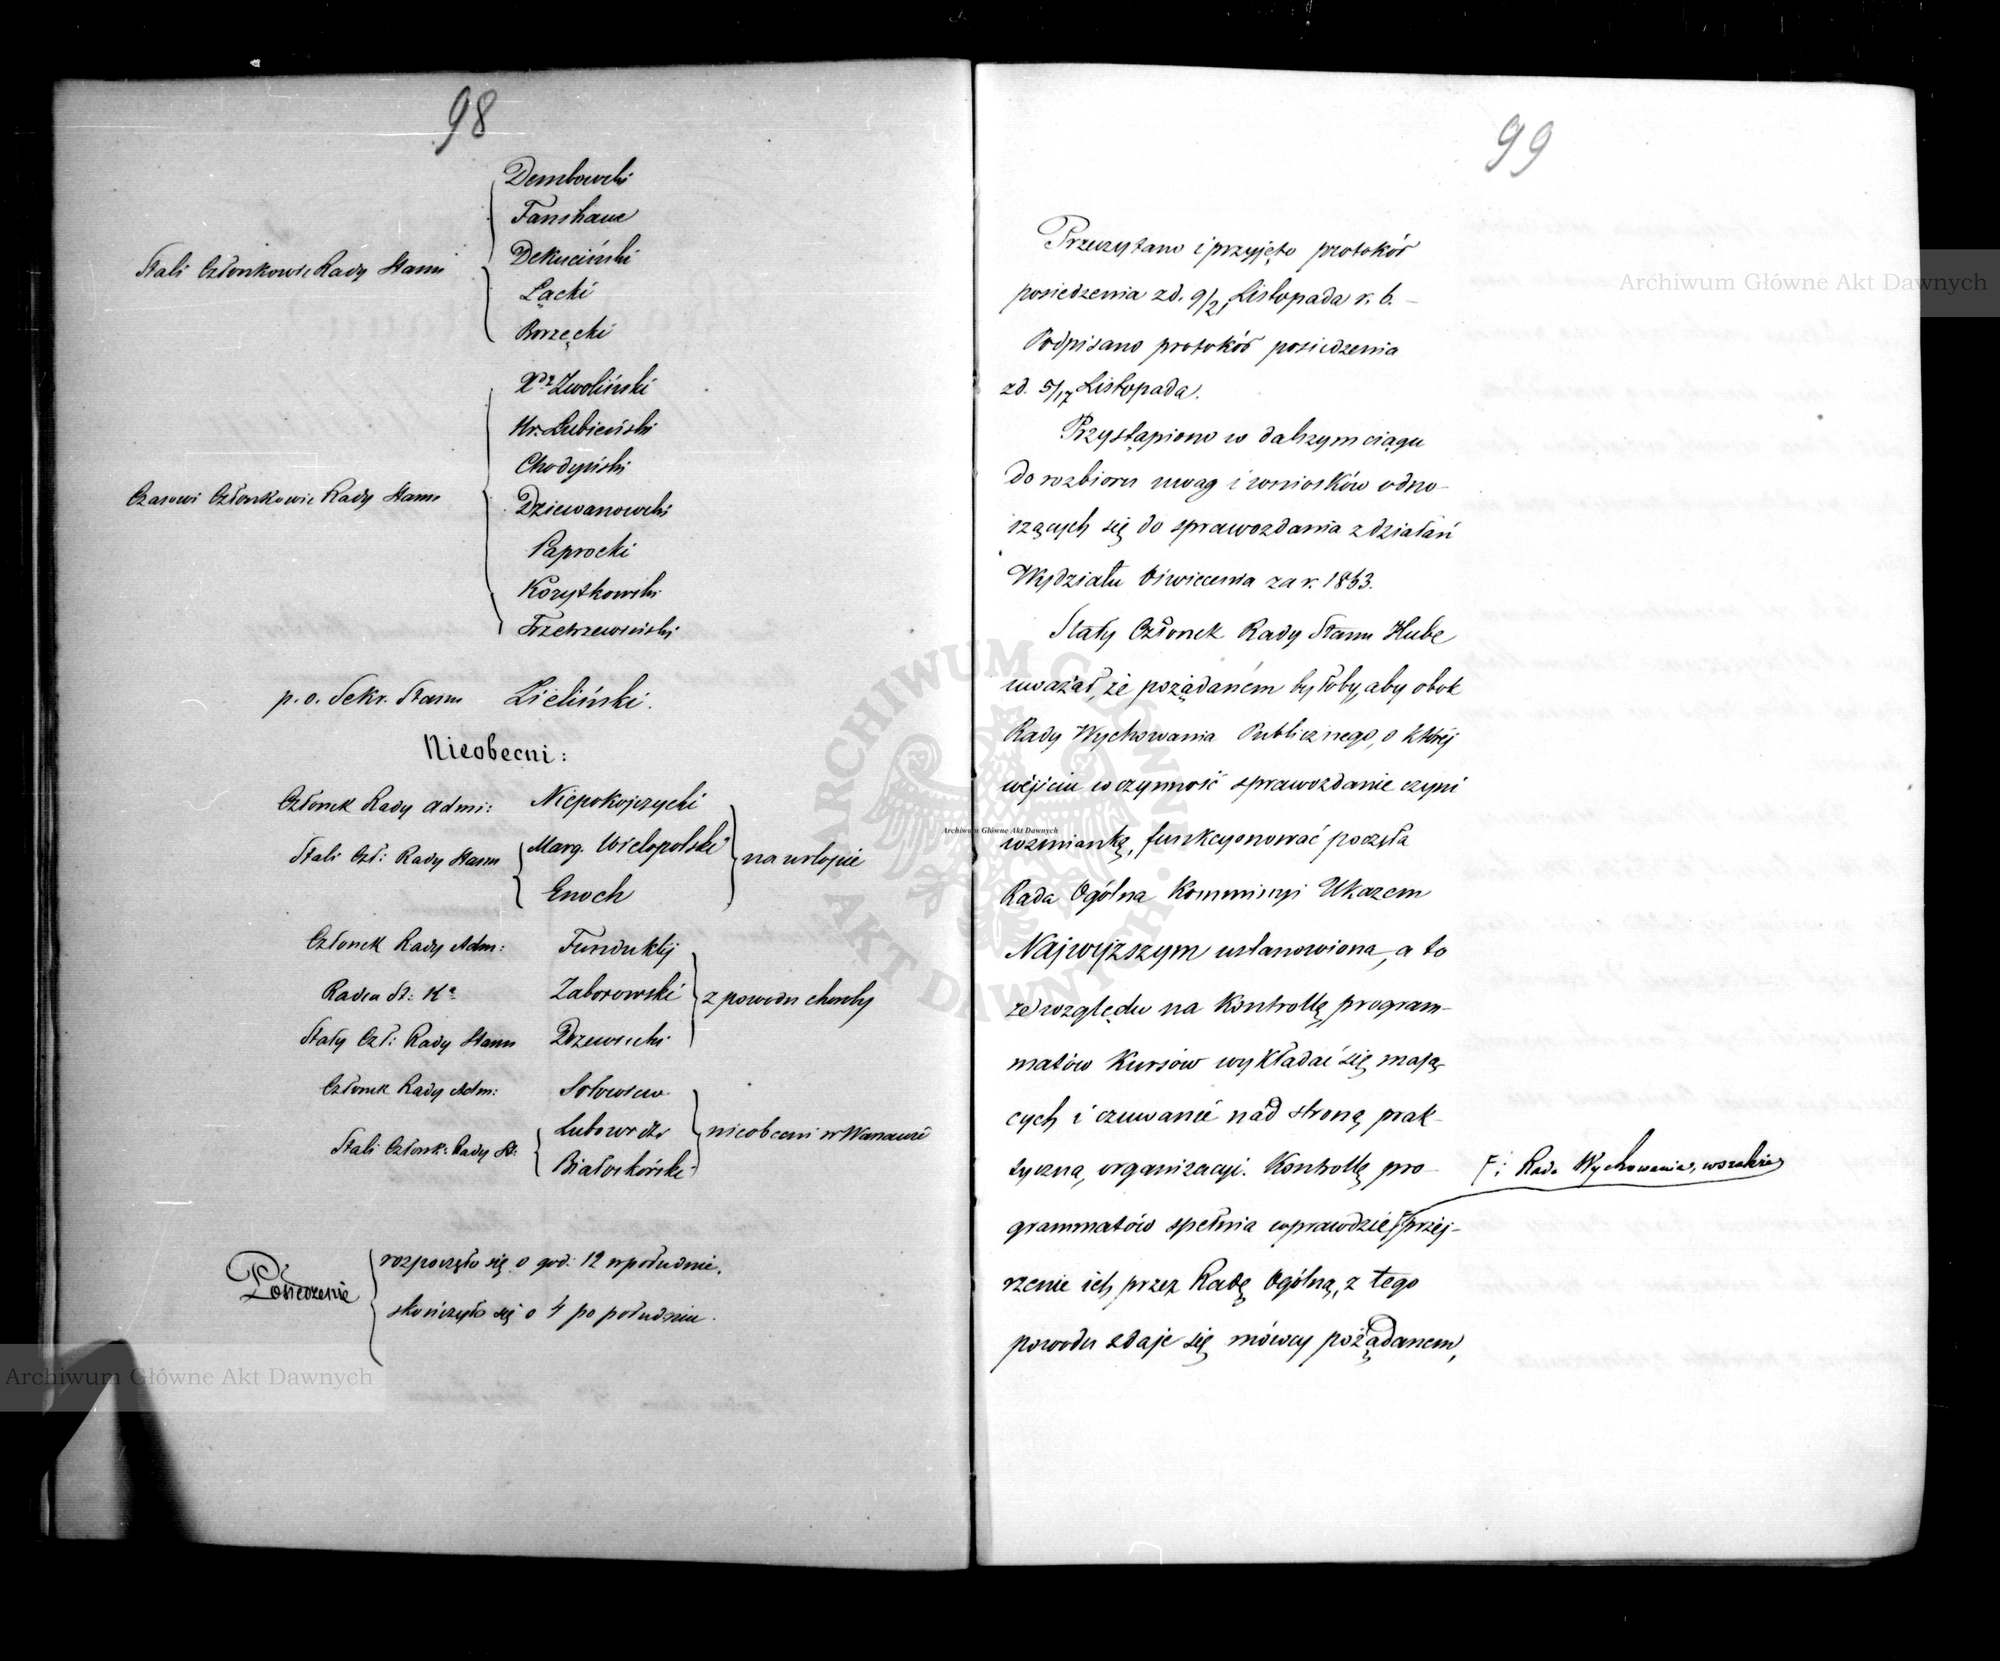 98
Stali Członkowie Rady Stanu
Dembowski
Fanshaue
Dekuciński
Łącki
Borzęcki
Czasowi Członkowie Rady Stanu
Xdz Zwoliński
Hr. Łubieński
Chodyński
Dziewanowski
Paprocki
Korytkowski
Trzetrzewiński
p. o. Sekr. Stanu Zieliński.
Nieobecni:
Członek Rady Admi: Niepokojczycki
Stali Czł: Rady Stanu
Marg. Wielopolski
Enoch
na urlopie
Członek Rady Adm: Funduklej
Radca St: Ka Zaborowski
Stały Czł: Rady Stanu Drzewiecki
z powodu choroby
Członek Rady Adm: Sołowiew
Stali Członk: Rady St:
Lubowidzki
Białoskórski
nieobecni w Warszawie
Posiedzenie
rozpoczęło się o god: 12 w południe.
skończyło się o 4 po południu.
99
Przeczytano i przyjęto protokół
posiedzenia zd. 9/21 Listopada r. b. –
Podpisano protokół posiedzenia
zd. 5/17 Listopada.
Przystąpiono w dalszym ciągu
do rozbioru uwag i wniosków odno-
szących się do sprawozdania z działań
Wydziału Oświecenia za r. 1863.
Stały Członek Rady Stanu Hube
uważał, że pożądaném byłoby, aby obok
Rady Wychowania Publicznego, o której
wejściu w czynność sprawozdanie czyni
wzmiankę, funkcyonować poczęła
Rada Ogólna Kommissyi Ukazem
Najwyższym ustanowiona, a to
ze względu na kontrollę program-
matów kursów wykładać się mają-
cych i czuwanie nad stroną prak-
tyczną organizacyi. Kontrollę pro-
grammatów spełnia wprawdzie F przej-
F: Rada Wychowania, wszakże
rzenie ich przez Radę Ogólną, z tego
powodu zdaje się mówcy pożądanem,
Archiwum Główne Akt Dawnych
Archiwum Główne Akt Dawnych
Archiwum Główne Akt Dawnych
ARCHIWUM GŁÓWNE AKT DAWNYCH